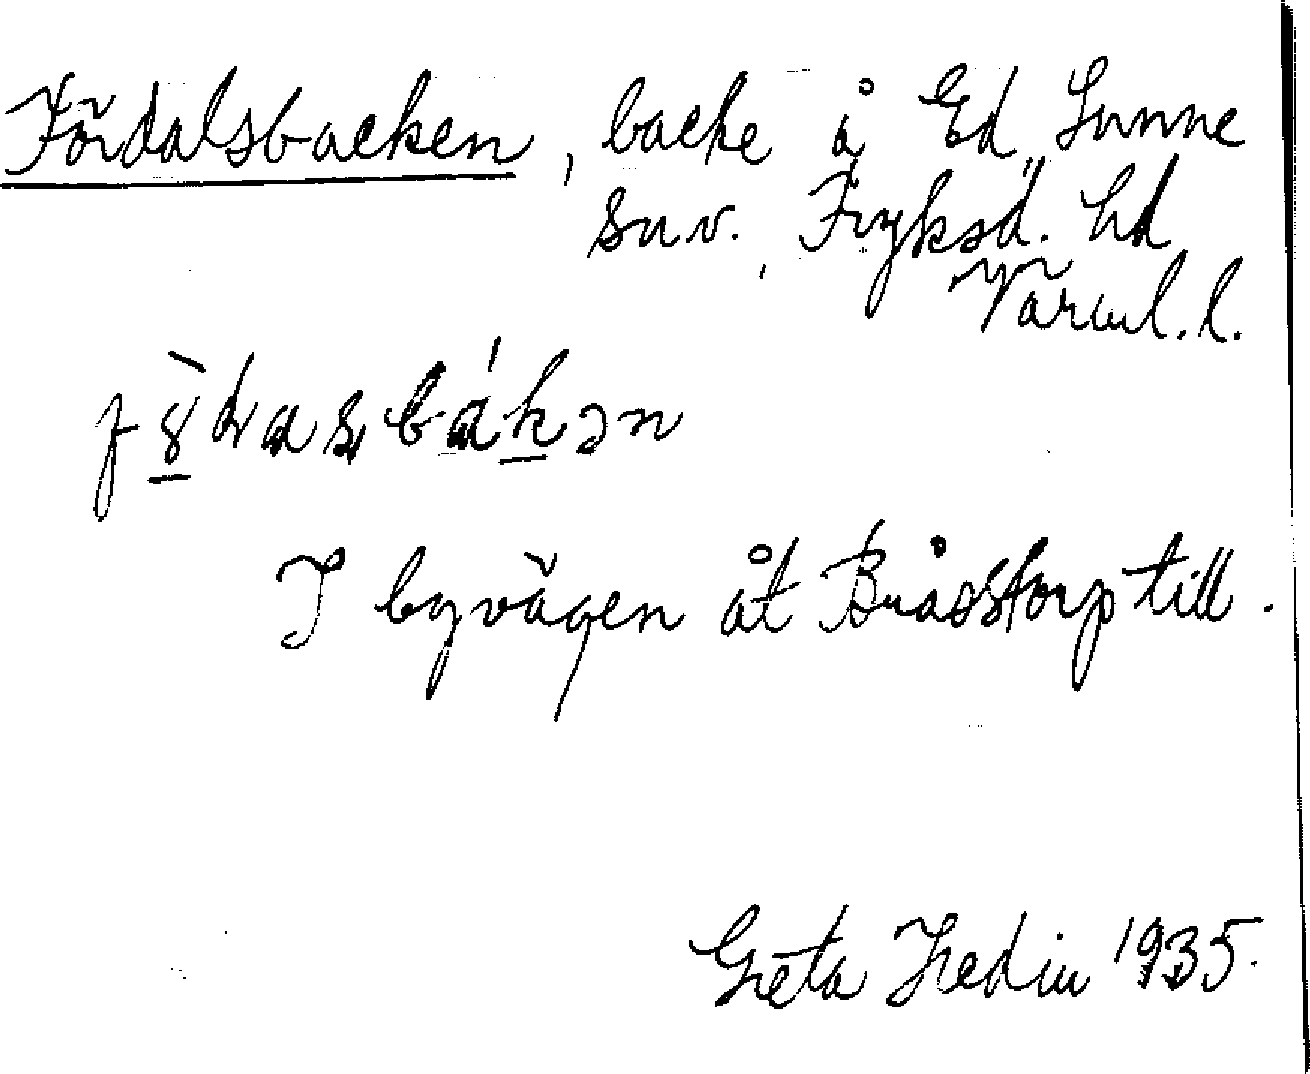 Fördalsbacken, backe å Ed, Sunne
sn. v. Fryksd. hd
Värml. l.
I byvägen åt Brådstorp till.
Greta Hedin 1935.